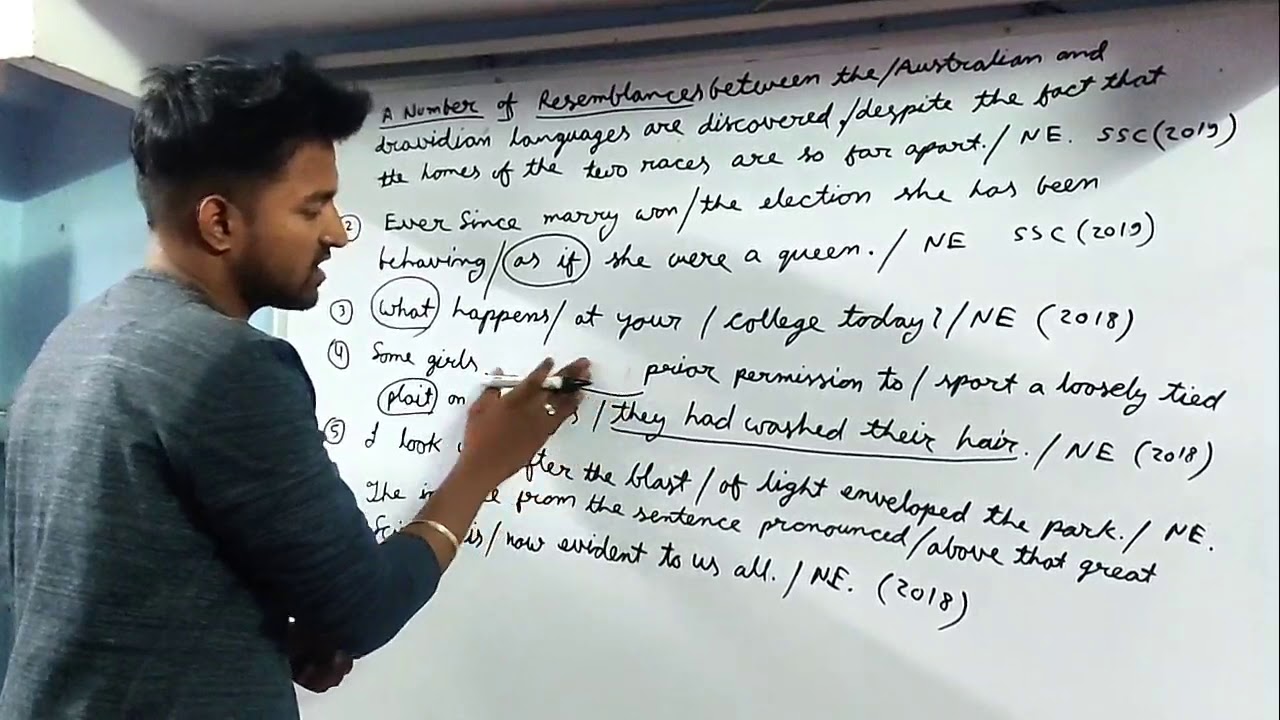 A Number of Resemblances between the/Australian and
dravidian languages are discovered/despite the fact that
the homes of the two races are so far apart./NE. SSC(2019)
② Ever Since marry won/the election she has been
behaving/as if she were a queen./NE SSC(2019)
③ What happens/at your/college today?/NE (2018)
④ Some girls prior permission to/sport a loosely tied
plait on /they had washed their hair./NE (2018)
⑤ I look after the blast/of light enveloped the park./NE.
The from the sentence pronounced/above that great
is/now evident to us all./NE. (2018)